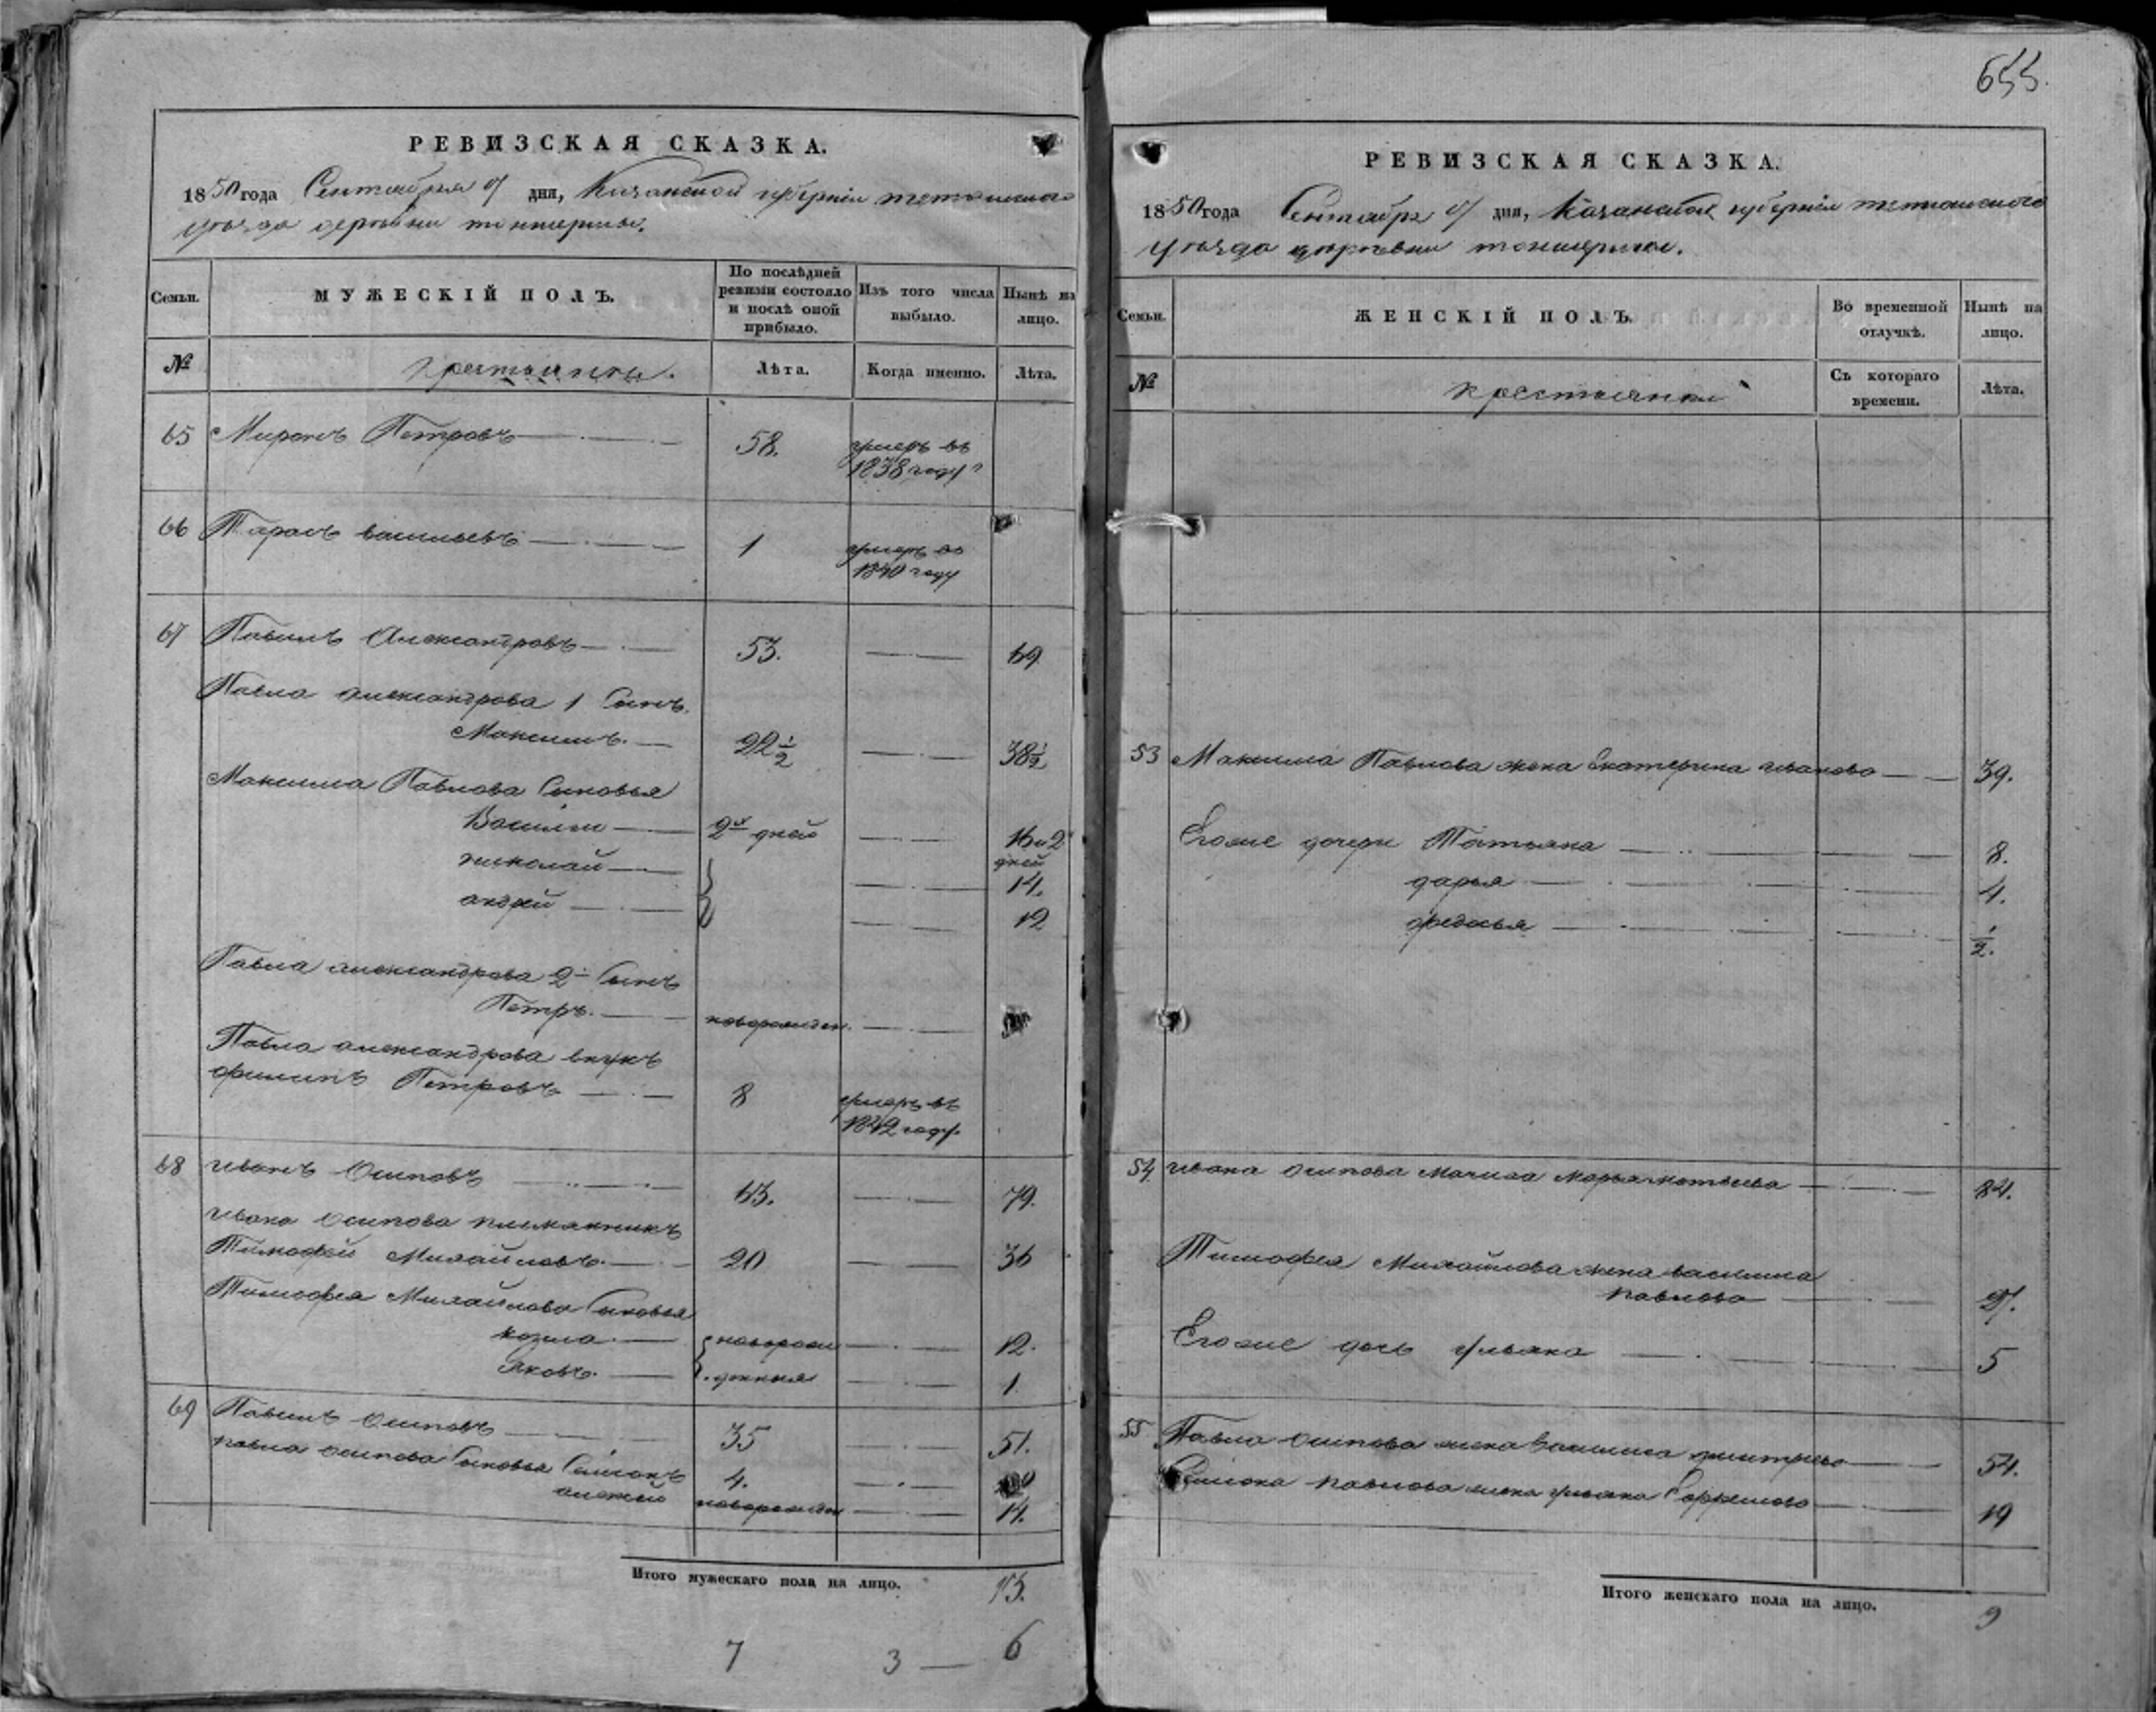 655.
РЕВИЗСКАЯ СКАЗКА.
1850 года Сентября дня, Казанской губерніи тетюшскаго
уѣзда деревни
Семьи.
МУЖЕСКІЙ ПОЛЪ.
По послѣдней ревизіи состояло и послѣ оной прибыло.
Изъ того числа выбыло.
Нынѣ на лицо.
№
крестьяне.
Лѣта.
Когда именно.
Лѣта.
65 Миронъ Петровъ 58. умеръ въ
1838 году
66 Тарасъ васильевъ 1 умеръ въ
1840 году
67 Павелъ Александровъ 53. 69
Павла александрова 1 Сынъ
Максимъ. 22 1/2 38 1/2
Максима Павлова Сыновья
Василій 2х дней 16 и 2
дней
николай 14.
андрей 12
Павла александрова 2й Сынъ
Петръ. новорожден.
Павла александрова внукъ
филипъ Петровъ 8 умеръ въ
1842 году.
68 иванъ Осиповъ 63. 79.
ивана осипова племянникъ
Тимофей Михайловъ. 20 36
Тимофея Михайлова Сыновья
козма новорож 12.
Яковъ. денныя 1
69 Павелъ Осиповъ 35 51.
павла осипова Сыновья Семионъ 4.
алексей новорожден 14.
Итого мужескаго пола на лицо. 13.
7 3 — 6
РЕВИЗСКАЯ СКАЗКА.
1850 года Сентября дня, Казанской губерніи тетюшскаго
уѣзда деревни
Семьи.
ЖЕНСКІЙ ПОЛЪ.
Во временной отлучкѣ.
Нынѣ на лицо.
№
крестьянки
Съ котораго времени.
Лѣта.
53 Максима Павлова жена Екатерина иванова 39.
Егоже дочери Татьяна 8.
дарья 4.
федосья 1/2.
54 ивана осипова Мачиха Марья матвеева 84.
Тимофея Михайлова жена василиса
павлова
Егоже дочь ульяна 5
55 Павла осипова жена Василиса дмитрева 54.
Семиона павлова жена ульяна 19
Итого женскаго пола на лицо. 9